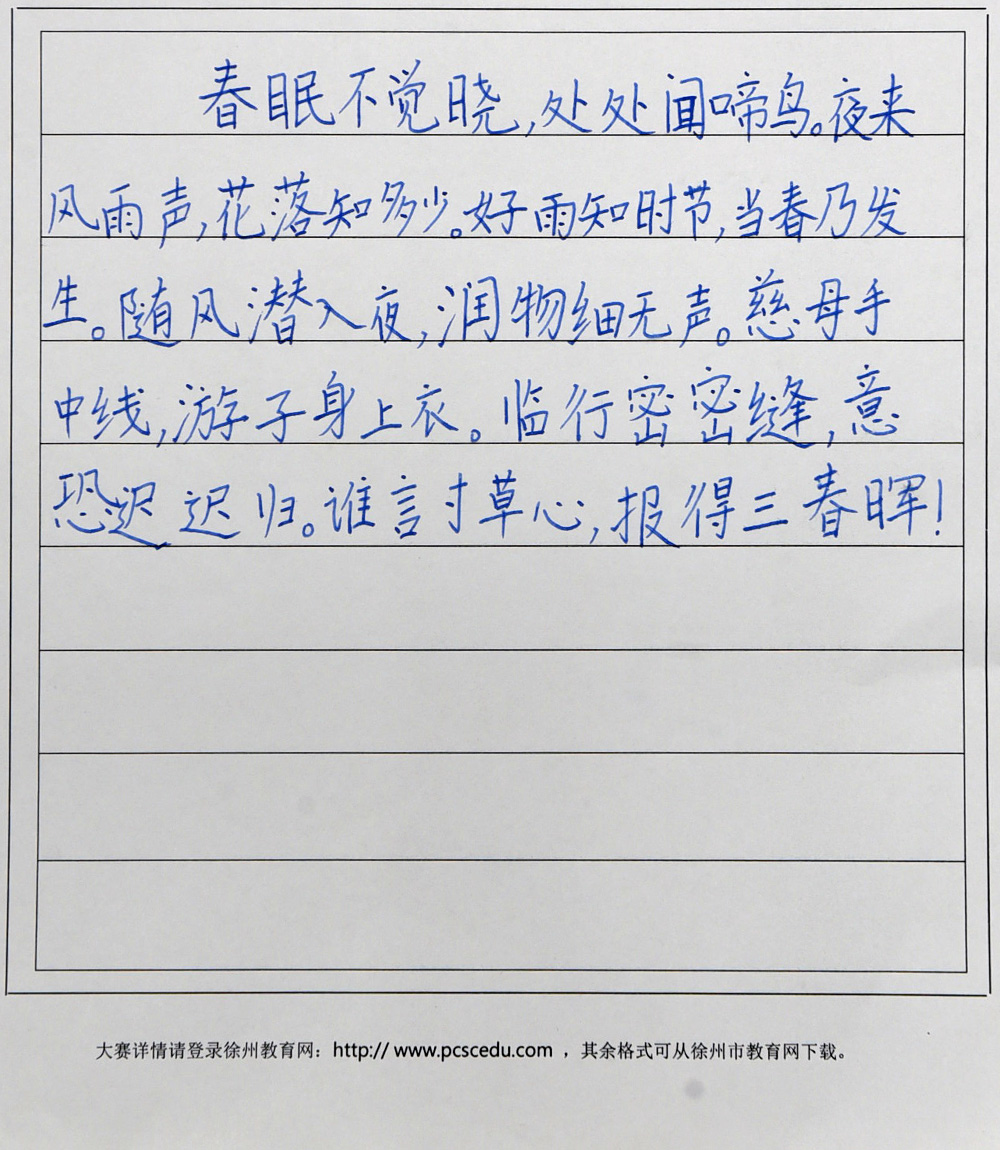 春眠不觉晓,处处闻啼鸟。夜来
风雨声,花落知多少。好雨知时节,当春乃发
生。随风潜入夜,润物细无声。慈母手
中线,游子身上衣。临行密密缝,意
恐迟迟归。谁言寸草心,报得三春晖!
大赛详情请登录徐州教育网：http:// www.pcscedu.com ，其余格式可从徐州市教育网下载。